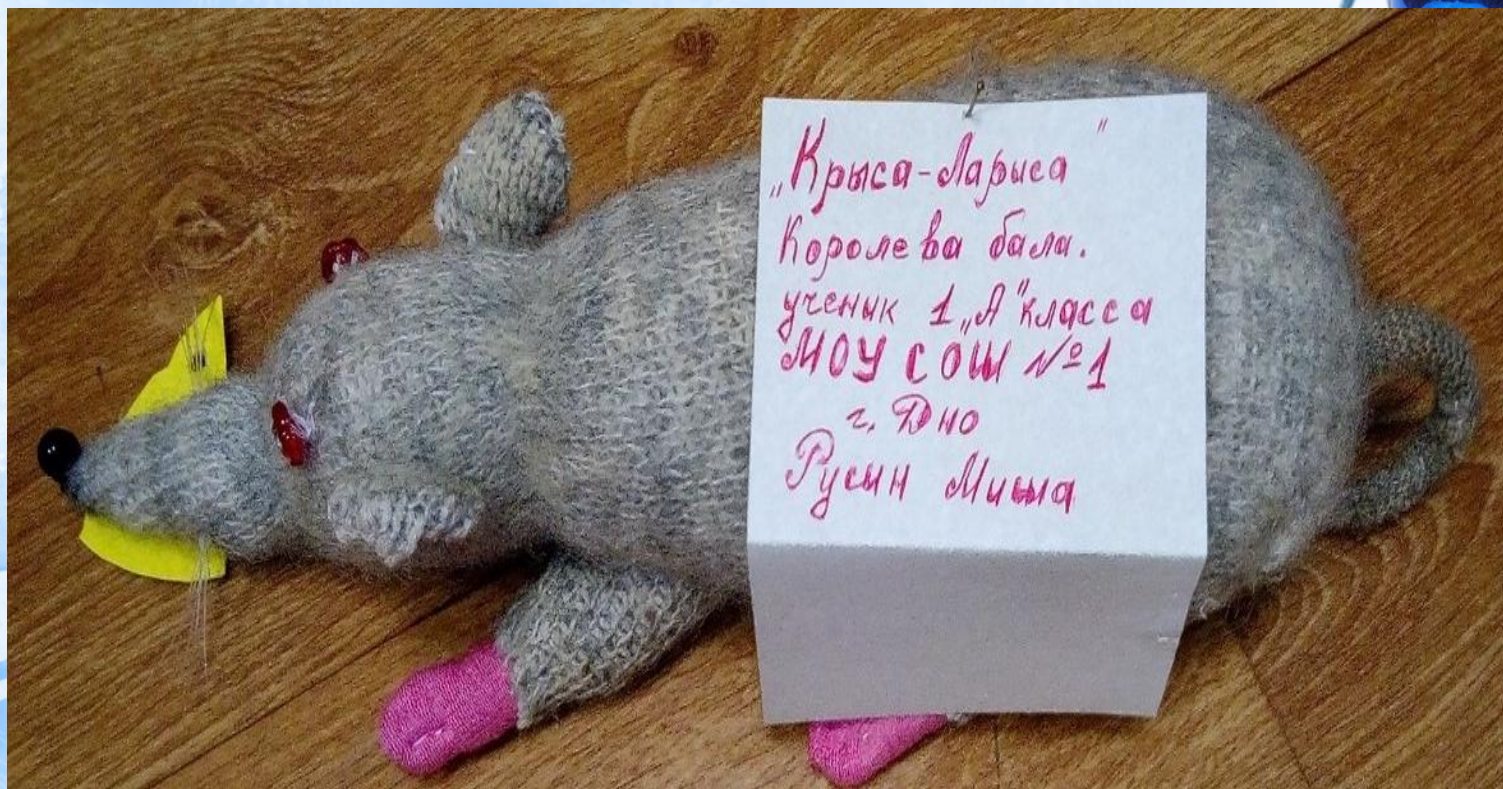 „Крыса-Лариса"
Королева бала.
ученик 1„А"класса
МОУ СОШ №1
г. Дно
Русын Миша